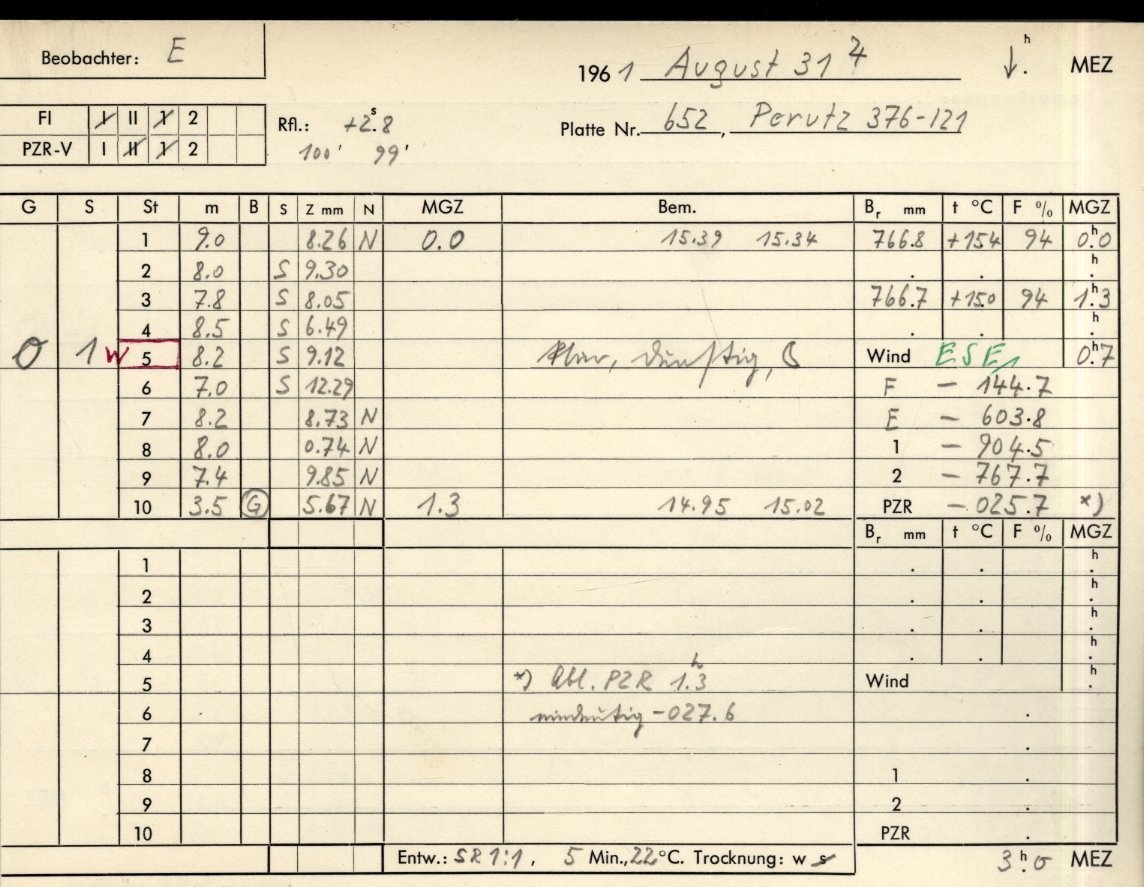 Beobachter: E
1961 August 31 h MEZ
FI I II 1 2
PZR-V I II 1 2
Rfl.: +2.s8
100' 99'
Platte Nr. 652, Perutz 376-121
G S St m B S Z mm N MGZ Bem. Br mm t °C F % MGZ
1 9.0 8.26 N 0.0 15.39 15.34 766.8 +15.4 94 0.h0
2 8.0 S 9.30 . . h.
3 7.8 S 8.05 766.7 +15.0 94 1.h3
4 8.5 S 6.49 . . h.
0 1 W 5 8.2 S 9.12 klar, dunstig, Wind ESE 0.h7
6 7.0 S 12.29 F - 144.7
7 8.2 8.73 N E - 603.8
8 8.0 0.74 N 1 - 904.5
9 7.4 9.85 N 2 - 767.7
10 3.5 G 5.67 N 1.3 14.95 15.02 PZR - 025.7 *)
Br mm t °C F % MGZ
1 . . h.
2 . . h.
3 . . h.
4 . . h.
5 *) Abl. PZR 1.h3 Wind h.
6 -027.6 .
7 .
8 1 .
9 2 .
10 PZR .
Entw.: SR 1:1, 5 Min., 22 °C. Trocknung: w s 3.h0 MEZ